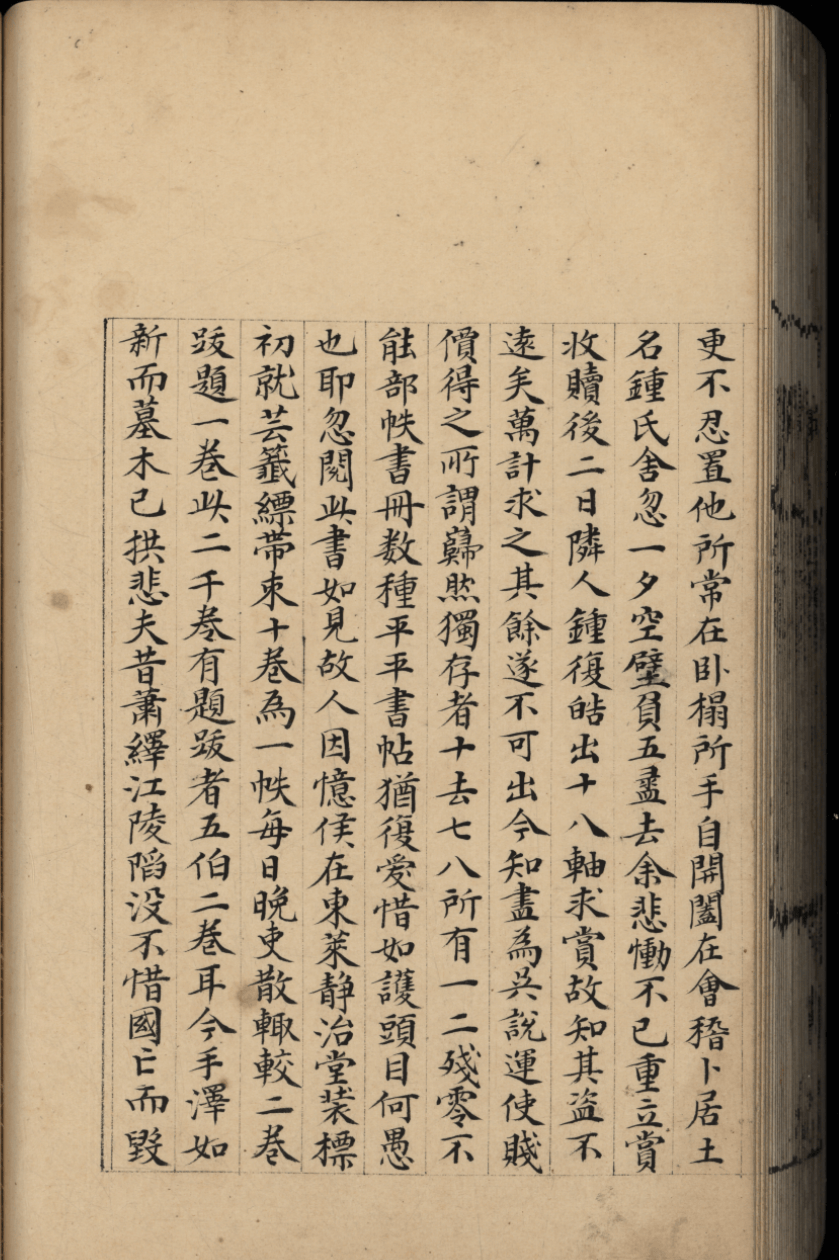 更不忍置他所常在卧榻所手自開闔在會稽卜居土
名鍾氏舍忽一夕空壁負五㿯去余悲慟不已重立賞
收贖後二日隣人鍾復皓出十八軸求賞故知其盗不
遠矣萬計求之其餘遂不可出今知盡為吳說運使賤
價得之所謂巋然獨存者十去七八所有一二殘零不
能部帙書冊数種平平書帖猶復愛惜如護頭目何愚
也耶忽閱此書如見故人因憶侯在東萊静治堂装標
初就芸籤縹帶束十卷為一帙每日晚吏散輙較二卷
跋題一卷此二千卷有題跋者五伯二卷耳今手澤如
新而墓木已拱悲夫昔蕭繹江陵陷没不惜國亡而毀